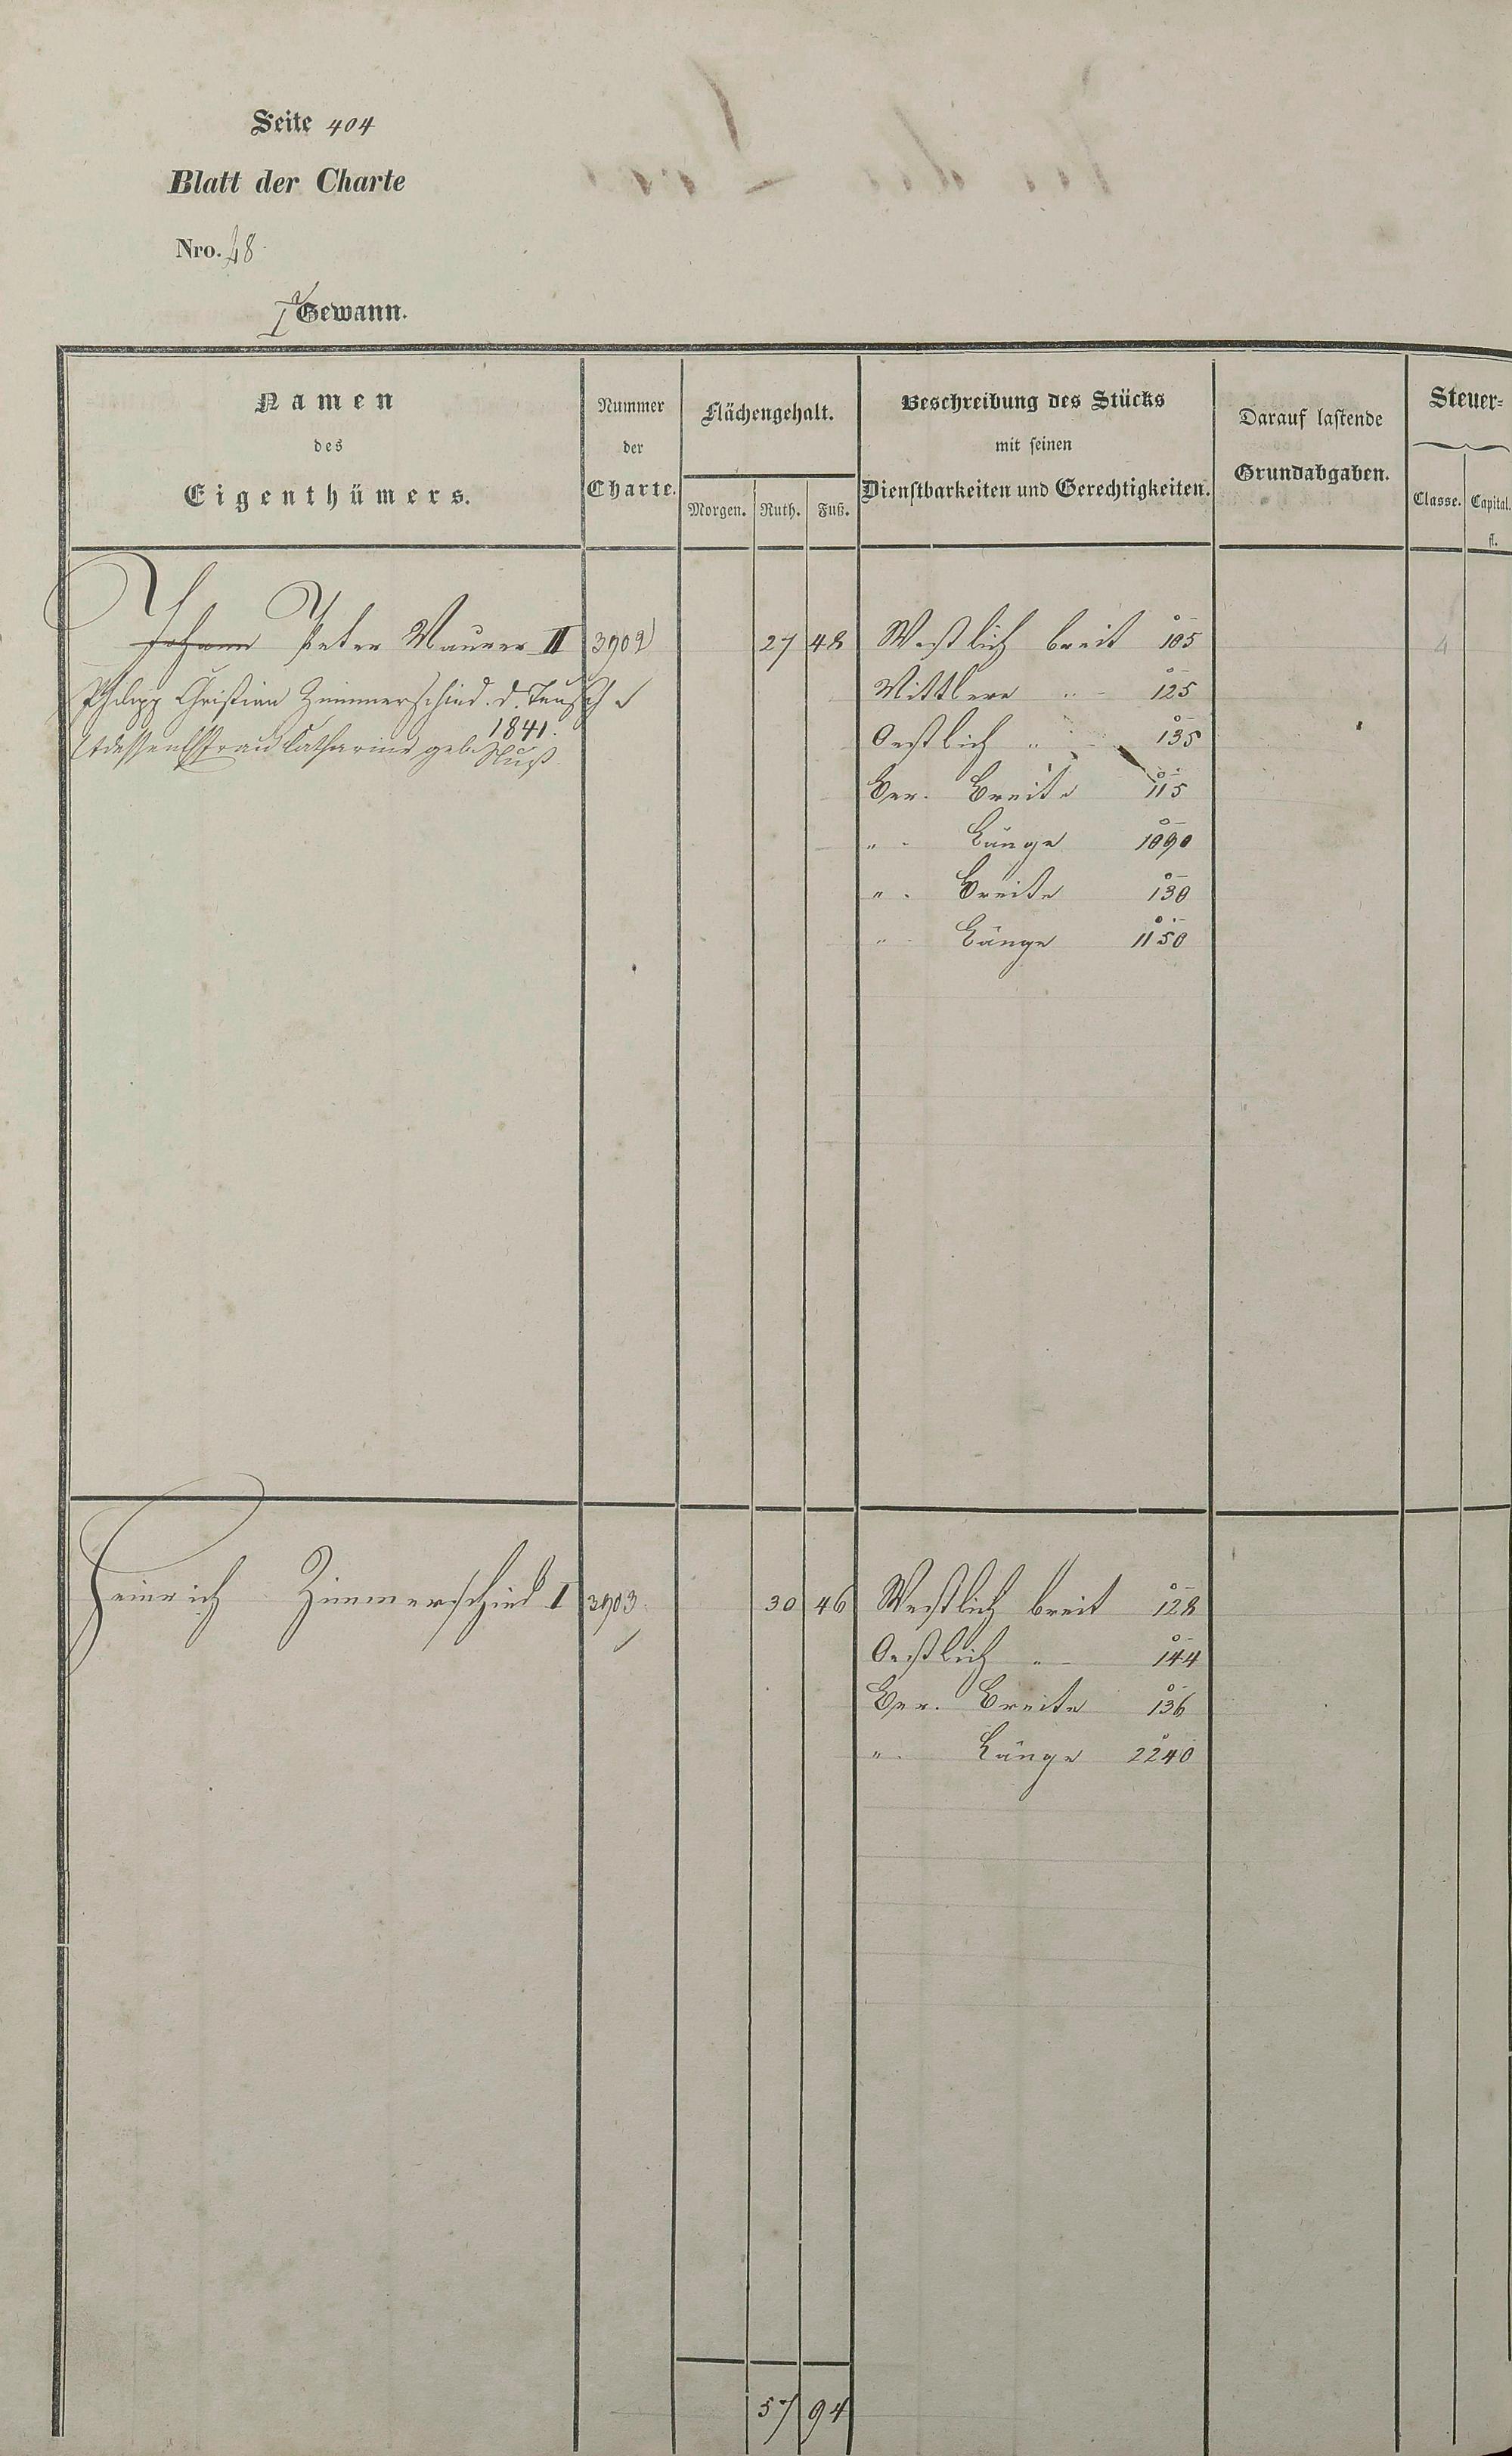 Seite 404
Blatt der Charte
Nro. 48
I Gewann.
Namen
des
Eigenthümers.
Nummer
der
Charte.
Flächengehalt.
Morgen. Ruth. Fuß.
Beschreibung des Stücks
mit seinen
Dienstbarkeiten und Gerechtigkeiten.
Darauf lastende
Grundabgaben.
Steuer=
Classe. Capital.
fl.
Johann Peter Maurer II 3902 27 48 Westlich breit 105 4
Philipp Christian Zimmerschied d. Tausch
Mittlere " 125
1841.
dessen Ehfrau Catharine geb.
Oestlich " 135
Ger. Breite 115
" Länge 1090
" Breite 130
" Länge 1150
Heinrich Zimmerschied I 3903 30 46 Westlich breit 128
Oestlich " 144
Ger. Breite 136
" Länge 2240
57 94